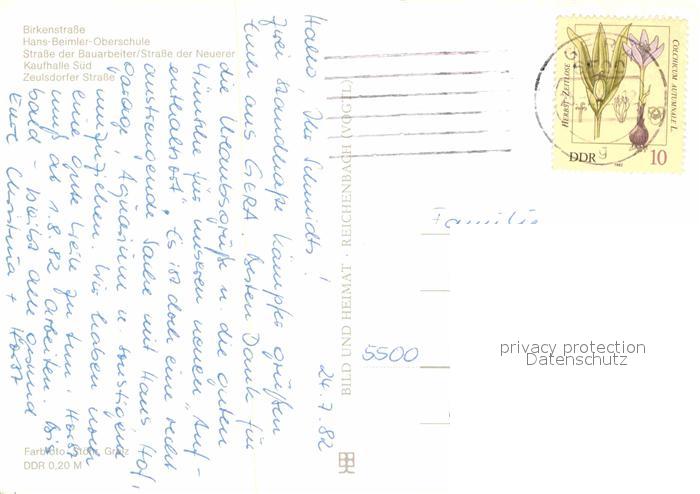 Birkenstraße
Hans-Beimler-Oberschule
Straße der Bauarbeiter/Straße der Neuerer
Kaufhalle Süd
Zeulsdorfer Straße
24.7.82
Hallo, Ihr Schmidts!
Zwei standhafte Kämpfer grüßen
Euch aus GERA. Besten Dank für
die Urlaubsgrüße u. die guten
Wünsche für unseren neuen "Auf-
enthaltsort". Es ist doch eine recht
anstrengende Sache mit Haus, Hof,
Garage, Aquarium u. sonstigem
umzuziehen. Wir haben noch
eine gute Weile zu tun. Horst
muß ab 1.8.82 arbeiten. Bis
bald - bleibt alle gesund
Eure Christina + Horst
Farbfoto: Stöhr, Greiz
DDR 0,20 M
BILD UND HEIMAT · REICHENBACH (VOGTL)
HERBST-ZEITLOSE
COLCHICUM AUTUMNALE L.
DDR
10
1982
Familie
5500
privacy protection
Datenschutz